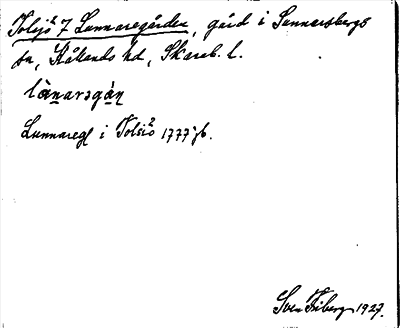 Tolsjö² 7 Lunnaregården, gård i Sunnersbergs
sn, Kållands hd, Skarab. l.
lùnarəgáṇ
Lunnaregl i Tolsiö² 1777 jb.
Sven Fiberg 1927.